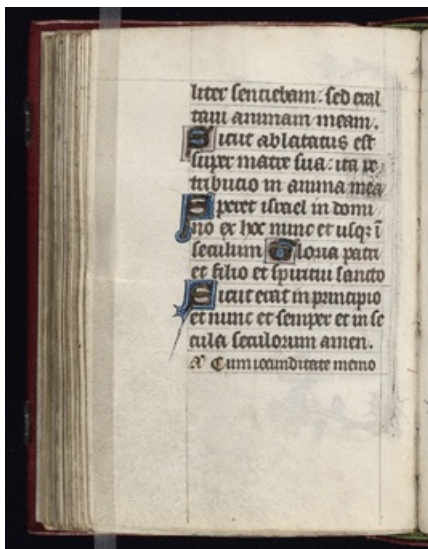 liter sentiebam: sed exal
taui animam meam.
Sicut ablatatus est
super matre sua: ita re
tributio in anima mea
Speret israel in domi
no ex hoc nunc et usqꝫ ī
seculum Gloria patri
et filio et spiritui sancto
Sicut erat in principio
et nunc et semper et in se
cula seculorum amen.
Cum iocunditate memo